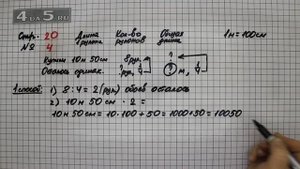 4DS.RU
Стр. 20 Длина 1 рулона Кол-во рулонов Общая длина 1м=100см
№ 4
Купили 10м 50см 8 рул. ?
Обоев один. ? рул. ? м,
1 способ: 1) 8:4=2(рул) обоев осталось
2) 10м 50см · 2 =
10м 50см = 10·100+50=1000+50=10050